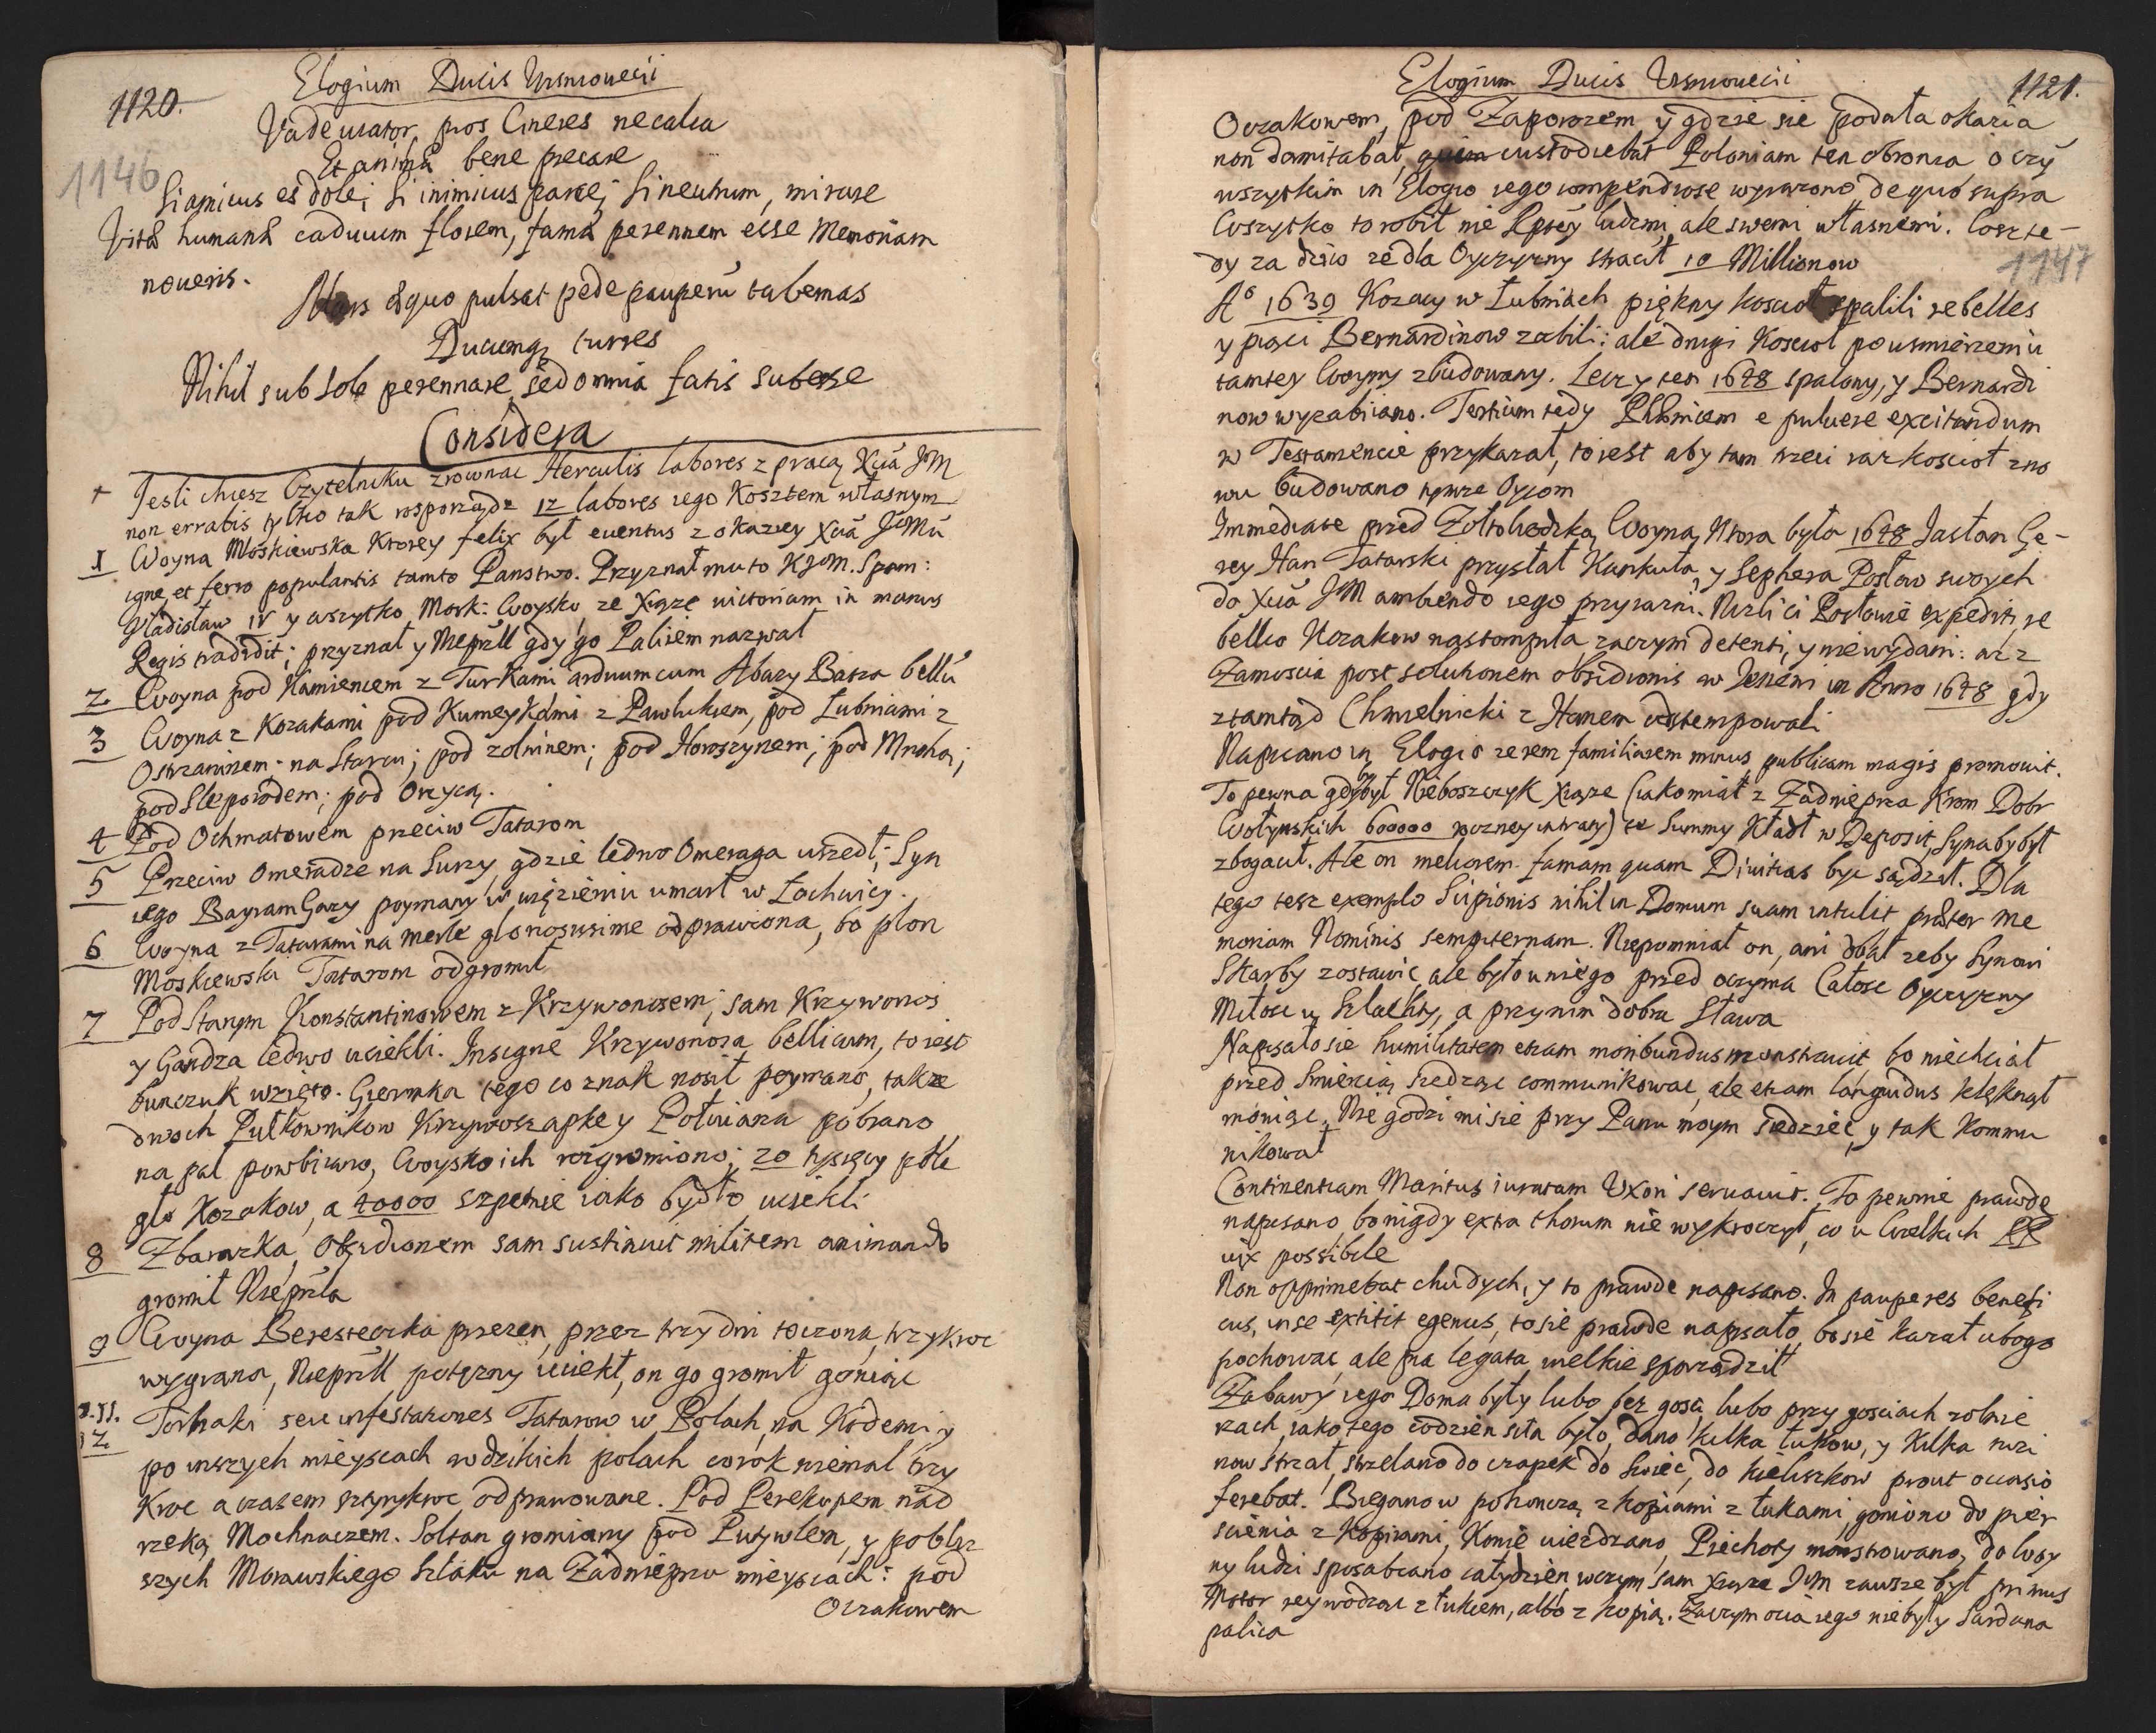 1120.
Elogium Ducis Wisniowecii
Vade viator, pros Cineres ne calca
Et animæ bene precare
1146
Si amicus es dole; Si inimicus parce; Si neutrum, mirare
Vitæ humanæ caducum florem, famæ perennem esse Memoriam
noveris.
Mors æquo pulsat pede pauperũ tabernas
Ducumq; turres
Nihil sub Sole perennare, sed omnia fatis subesse
Considera
+ Jesli chcesz Czytelniku zrownac Herculis labores z pracą Xcia JM
non errabis tylko tak rosporządz 12 labores iego Kosztem własnym
1 Woyna Moskiewska Ktorey felix był eventus z okazyey Xcia JeMu
igne et ferro populantis tamto Panstwo. Przyznał mu to KJoM. S pam:
Vladislaw IV y wszytko Mosk: Woysko ze Xiąze victoriam in manus
Regis tradidit; przyznał y Nieprzll gdy go Paliiem nazwał
2 Woyna pod Kamiencem z Turkami arduum cum Abazy Basza bellũ
3 Woyna z Kozakami pod Kumeykami z Pawlukiem, pod Łubniami z
Ostraninem; na Starcu; pod zolninem; pod Horoszynem; pod Mrcha;
pod Sleporodem; pod Orzycą.
4 Pod Ochmatowem przeciw Tatarom
5 Przeciw Omeradze na Surzy, gdzie ledwo Omeraga uszedł; Syn
iego Bayram Gazy poymany w więzieniu umarł w Łochwicy.
6 Woyna z Tatarami na Merle gloriosissime odprawiona, bo plon
Moskiewski Tatarom odgromił
7 Pod Starym Konstantinowem z Krzywonosem; sam Krzywonos
y Gandza ledwo uciekli. Insigne Krzywonosa bellicum, to iest
bunczuk wzięto. Giermka tego co znak nosił poymano, takze
dwoch Pułkownikow Krzywoszapkę y Połuiana pobrano
na pal powbiiano, Woysko ich rozgromiono; 20 tysięcy pole
gło Kozakow, a 40000 szpetnie iako bydło uciekli
8 Zbarazką Obsidionem sam sustinuit militem animando
gromił Nieprzla
9 Woyna Beresteczka przezen, przez trzy dni toczona, trzykroc
wygrana, Nieprzll potęzny uciekł, on go gromił goniąc
.11. Tarhaki seu infestationes Tatarow w Polach, na Kodemi y
12 po inszych mieyscach w dzikich polach corok niemal trzy
kroc a czasem sztyrykroc odprawowane. Pod Perekopem nad
rzeką Mochnaczem. Soltan gromiony pod Putywlem, y pobliz
szych Morawskiego Szlaku na Zadnieprzu mieyscach: pod
Oczakowem
Elogium Ducis Wisniowecii
1121.
Oczakowem, pod Zaporozem y gdzie sie podała okazia
non damitabat, custodiebat Poloniam ten obronca o czỹ
wszytkim in Elogio iego compendiose wyrazono de quo supra
Wszytko to robił nie Rptey ludzmi, ale swemi własnemi. Coz te-
dy za dziw ze dla Oyczyzny stracił 10 Millionow
1147
Aº 1639 Kozacy w Łubniach piękny kosciol spalili rebelles
y pięci Bernardinow zabili; ale drugi Kosciol po usmierzeniu
tamtey Woyny zbudowany. Lecz y ten 1648 spalony, y Bernardi
now wyzabiiano. Tertium tedy Phœnicem e pulvere excitandum
w Testamencie przykazał, to iest aby tam trzeci raz kosciol zno
wu budowano tymze Oycom
Immediate przed Zoltohodzką Woyną, Ktora była 1648 Jaslan Ge-
rey Han Tatarski przysłał Kankuła y Sephera Posłow swoych
do Xcia JM ambiendo iego przyiazni. Nizli ci Posłowie expediti, re
bellio Kozakow nastompiła, zaczym detenti, y nie wydani: az z
Zamoscia post solutionem obsidionis w Jesieni in Anno 1648 gdy
ztamtąd Chmielnicki z Hanem odstempowali
Napisano w Elogio ze rem familiarem minus publicam magis promovit.
To pewna gdyby był Nieboszczyk Xiąze (iako miał z Zadnieprza Krom Dobr
Wołynskich 600000 roczney intraty) te Summy Kładł w Deposit, Syna by był
zbogacił. Ale on meliorem famam quam Divitias byc sądził. Dla
tego tesz exemplo Scipionis nihil in Domum suam intulit præter Me
moriam Nominis sempiternam. Niepomniał on, ani dbał zeby Synowi
Skarby zostawic, ale było u niego przed oczyma Całosc Oyczyzny
Miłosc y Szlachty, a przy nim dobra Sława
Napisało sie humilitatem etiam moribundus monstravit bo niechciał
przed Smiercią siedząc communikowac, ale etiam languidus klęknął
moniąc, Nie godzi mi sie przy Panu moym siedziec, y tak Kommu
nikował
Continentiam Maritus iuratam Uxori servavit. To pewnie prawdę
napisano, bo nigdy extra thorum nie wykroczył, co u Wielkich PP
vix possibile
Non opprimebat chudych, y to prawdę napisano. In pauperes benefi
cus, in se extitit egenus, to sie prawde napisało, bo sie kazał ubogo
pochowac, ale pia legata wielkie sporządził
Zabawy iego Doma były lubo bez gosci, lubo przy gosciach zolnie
rzach, iako tego codzien siła było, dano kilka łukow, y kilka tuzi
now strzał, strzelano do czapek, do Swiec, do kieliszkow prout occasio
ferebat. Biegano w pohonczą z kopiami z łukami, goniono do pier
scienia z kopiami, Konie uiezdzano, Piechoty monstrowano, do Woy
ny ludzi sposabiano cały dzien w czym sam Xiąze JM zawsze był primus
Motor rey wodząc z łukiem, albo z kopią. Zaczym ocia iego nie były Sardana
palica